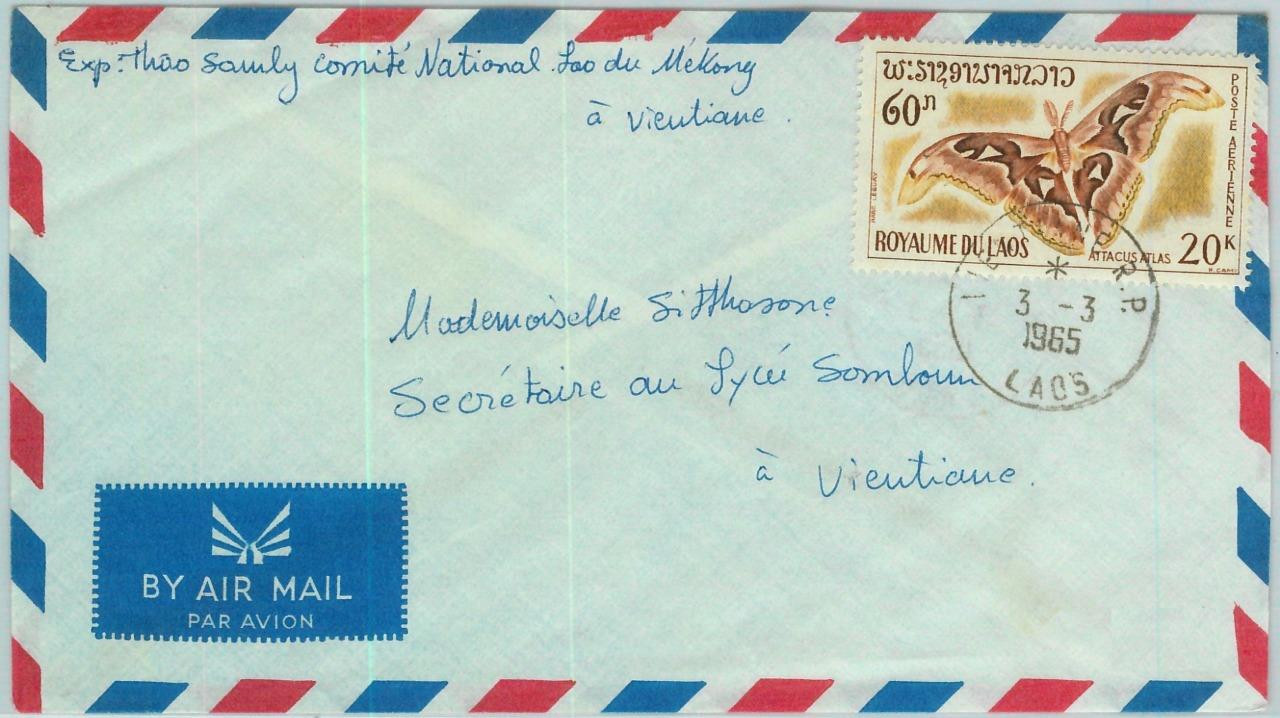 Exp: Thao Samly Comité National Lao du Mékong
à Vientiane.
ພຣະຣາຊອານາຈັກລາວ
60ກ
POSTE AERIENNE
MARC LEGUAY
ROYAUME DU LAOS
ATTACUS ATLAS
20K
R. CAMI
R.P.
3 -3
1965
LAOS
Mademoiselle Sitthosone
Secrétaire au Lycée Somboun
à Vientiane.
BY AIR MAIL
PAR AVION